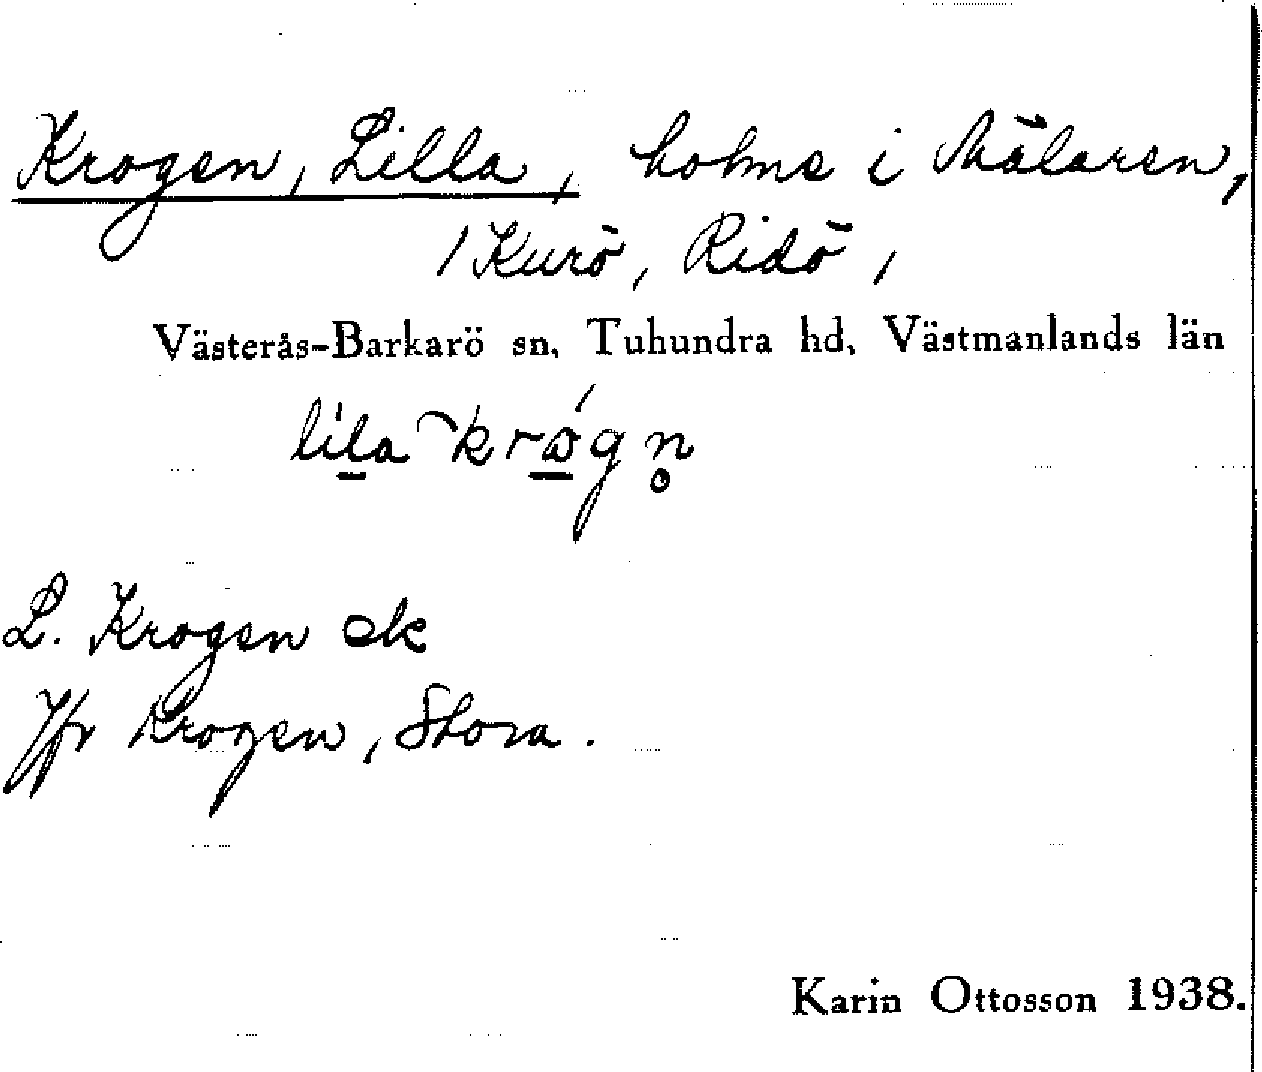 Krogen, Lilla, holme i Mälaren,
/Kurö, Ridö,
Västerås-Barkarö sn, Tuhundra hd, Västmanlands län
lila krogn
L. Krogen ek
Jfr Krogen, Stora.
Karin Ottosson 1938.